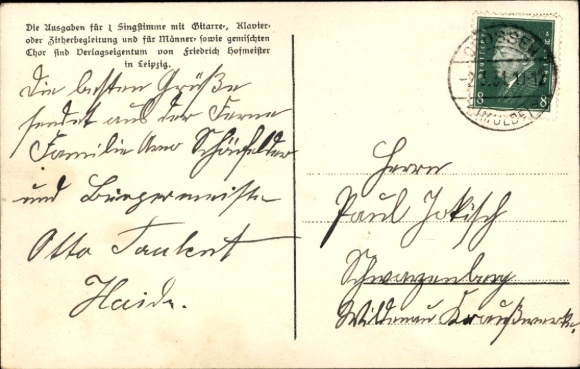 Die Ausgaben für 1 Singstimme mit Gitarre-, Klavier-
oder Zitherbegleitung und für Männer- sowie gemischten
Chor sind Verlagseigentum von Friedrich Hofmeister
in Leipzig.
Die besten Grüße
sendet aus der Ferne
Familie Arno Schönfelder
und Bürgermeister
Otto Taubert
Haide.
Herrn
Paul Jokisch
Schwarzenberg
Wildenau Kraußwerke.
8 8
(MULDE)